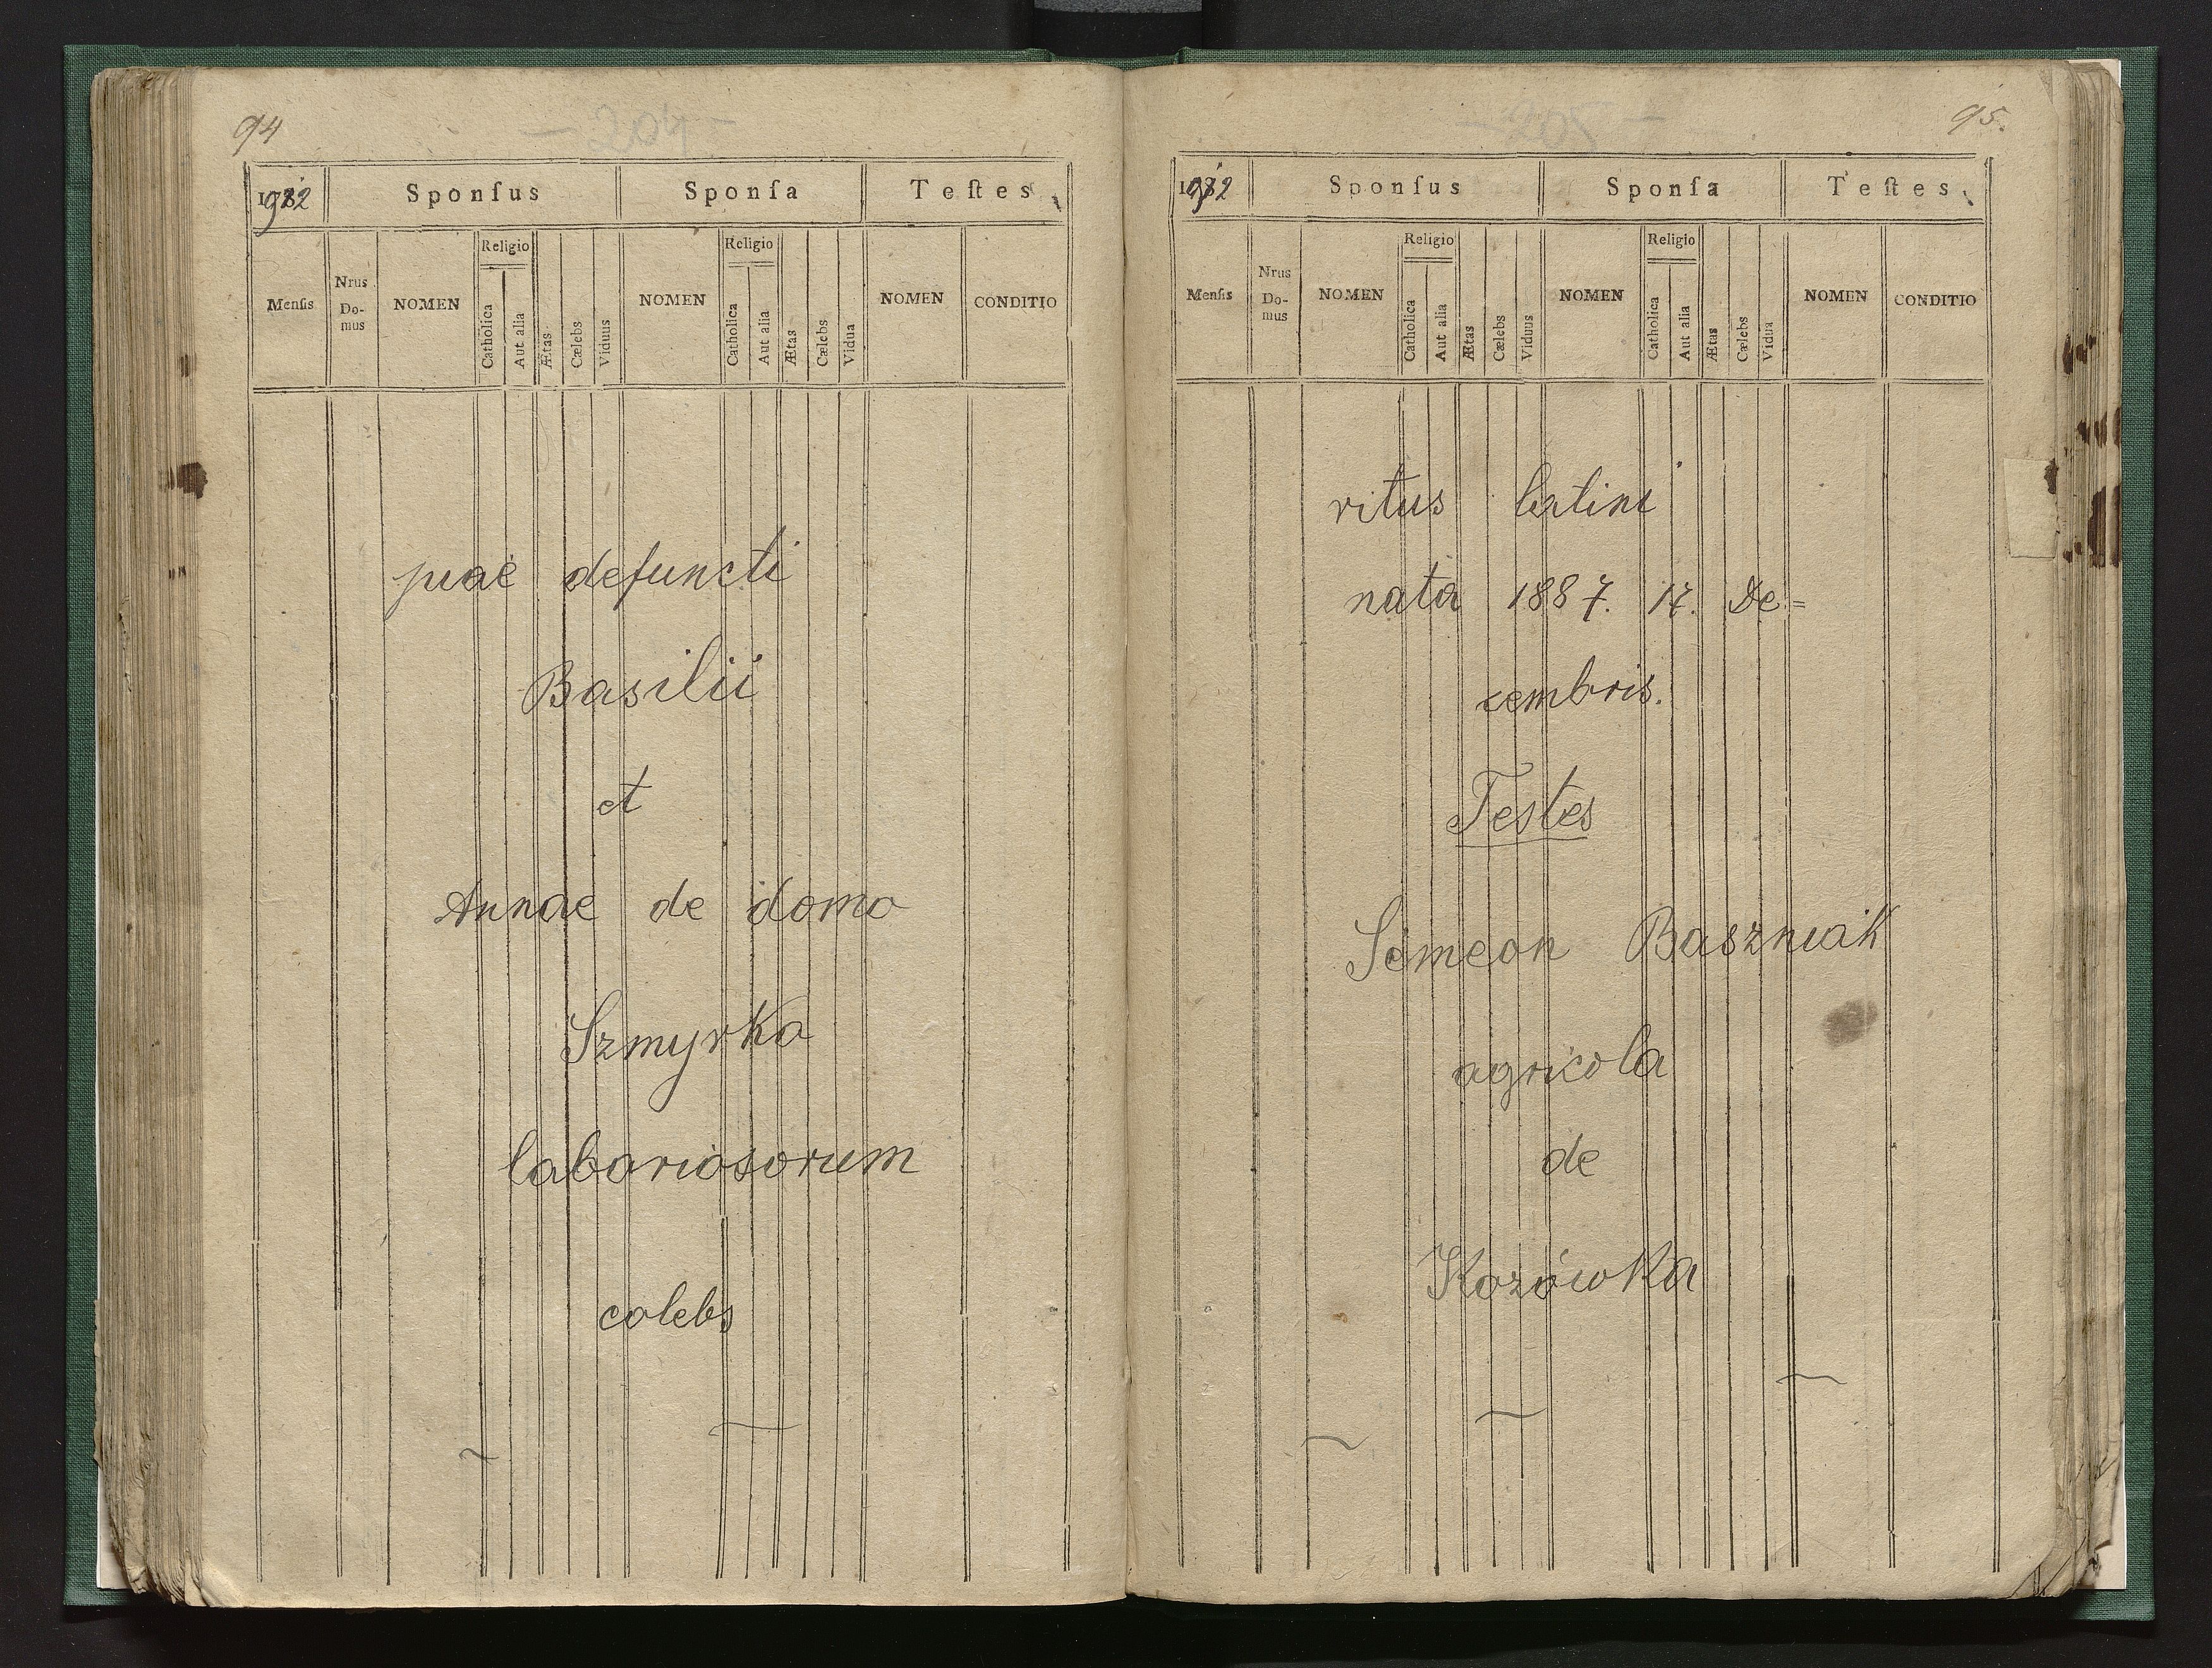 94
- 204 -
1912
Sponſus
Sponſa
Teſtes
Menſis
Nrus
Do-
mus
NOMEN
Religio
Catholica
Aut alia
Ætas
Cælebs
Viduus
NOMEN
Religio
Catholica
Aut alia
Ætas
Cælebs
Vidua
NOMEN
CONDITIO
piae defuncti
Basilii
et
Annae de domo
Szmyrka
laboriosorum
colebs
95.
- 205 -
1912
Sponſus
Sponſa
Teſtes
Menſis
Nrus
Do-
mus
NOMEN
Religio
Catholica
Aut alia
Ætas
Cælebs
Viduus
NOMEN
Religio
Catholica
Aut alia
Ætas
Cælebs
Vidua
NOMEN
CONDITIO
ritus latini
nata 1887. 17. De=
cembris.
Testes
Semeon Baszniak
agricola
de
Kozówka